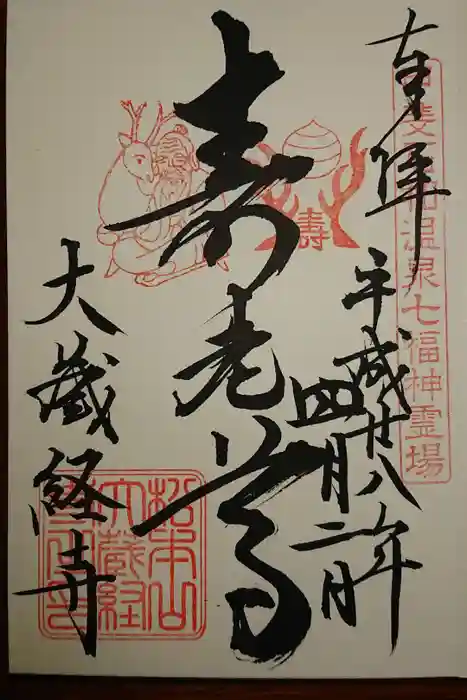 奉拝
甲斐石和温泉七福神霊場
平成廿八年
四月二日
寿老尊
寿
大蔵経寺
松本山
大蔵経